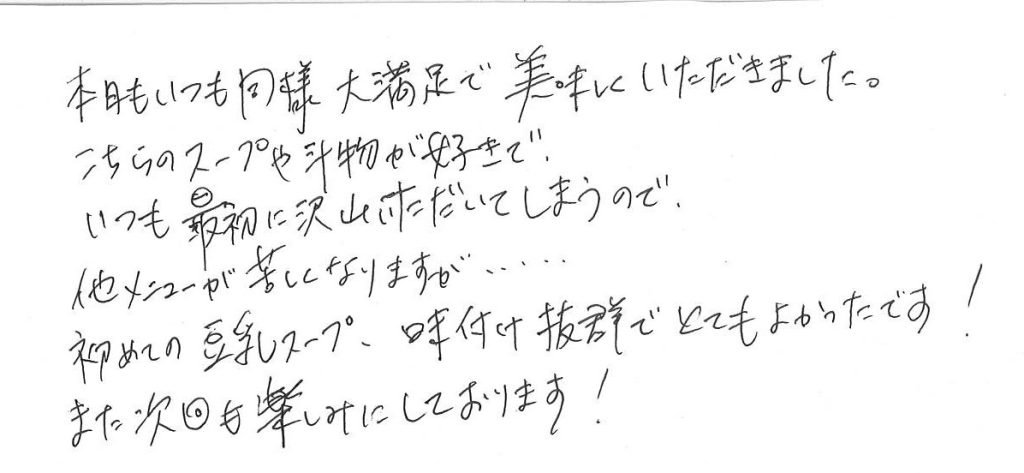 本日もいつも同様大満足で美味しくいただきました。
こちらのスープや汁物が好きで、
いつも最初に沢山いただいてしまうので、
他メニューが苦しくなりますが、・・・・・
初めての豆乳スープ、味付け抜群でとてもよかったです!
また次回も楽しみにしております!